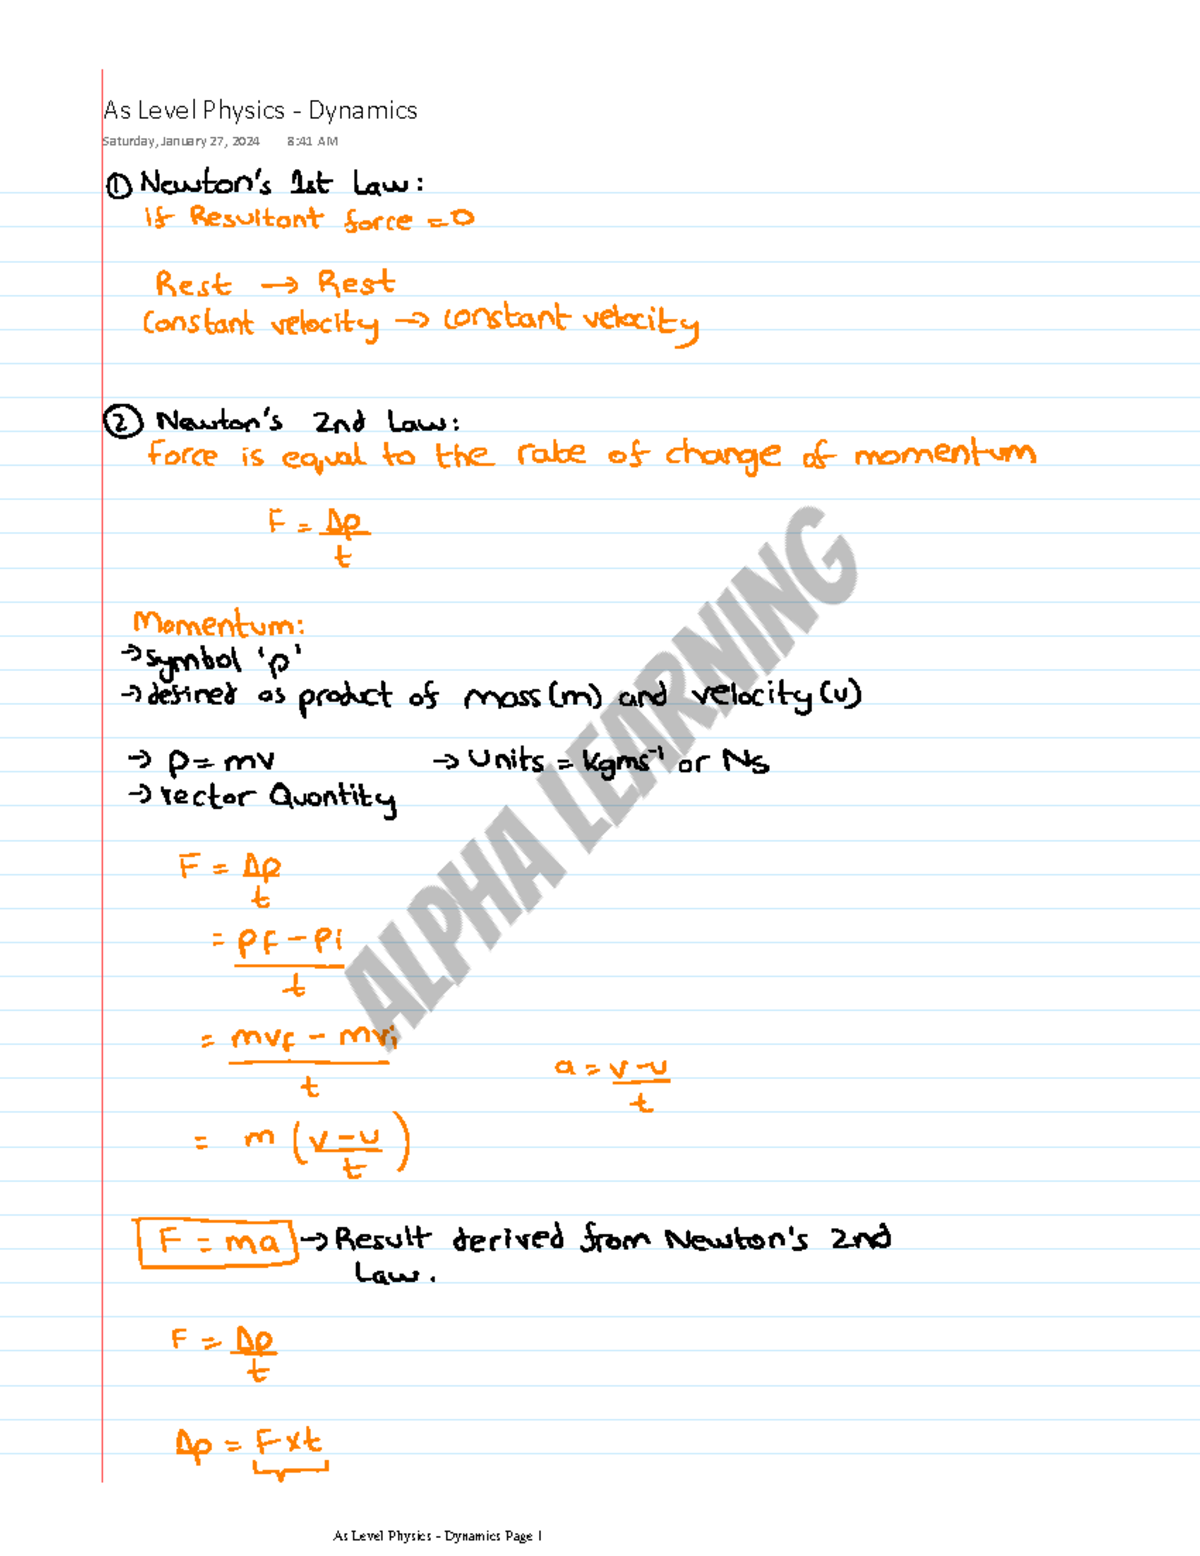 As Level Physics - Dynamics
Saturday, January 27, 2024 8:41 AM
① Newton's 1st Law:
if Resultant force = 0
Rest → Rest
Constant velocity → constant velocity
② Newton's 2nd Law:
Force is equal to the rate of change of momentum
F = Δp
t
Momentum:
→ symbol 'p'
→ defined as product of mass (m) and velocity (v)
→ p = mv → Units = kgms⁻¹ or Ns
→ vector Quantity
F = Δp
t
= pf - pi
t
= mvf - mvi
t
a = v - u
t
= m (v - u
t)
F = ma → Result derived from Newton's 2nd
Law.
F = Δp
t
Δp = F x t
ALPHA LEARNING
As Level Physics - Dynamics Page 1